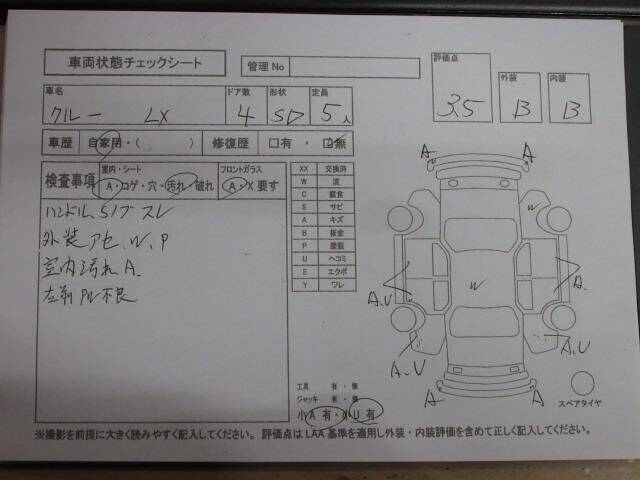 車両状態チェックシート
管理No
評価点 3.5
外装 B
内装 B
車名 クルー LX
ドア数 4
形状 SD
定員 5人
車歴 自家用・( )
修復歴 □有・☑無
検査事項
室内・シート
A・コゲ・穴・汚れ・破れ
フロントガラス
A・X要す
ハンドル、S/ノブ スレ
外装 アセ、W、P
室内汚れ A.
左前 PW 不良
XX 交換済
W 波
C 腐食
S サビ
A キズ
B 板金
P 塗装
U ヘコミ
E エクボ
Y ワレ
A
A
A.U
W
A.
A.U
A.U
A
A
工具 有・無
ジャッキ 有・無
小A有・小U有
スペアタイヤ
※撮影を前提に大きく読みやすく記入してください。評価点はLAA基準を適用し外装・内装評価を含めて正しく記入してください。